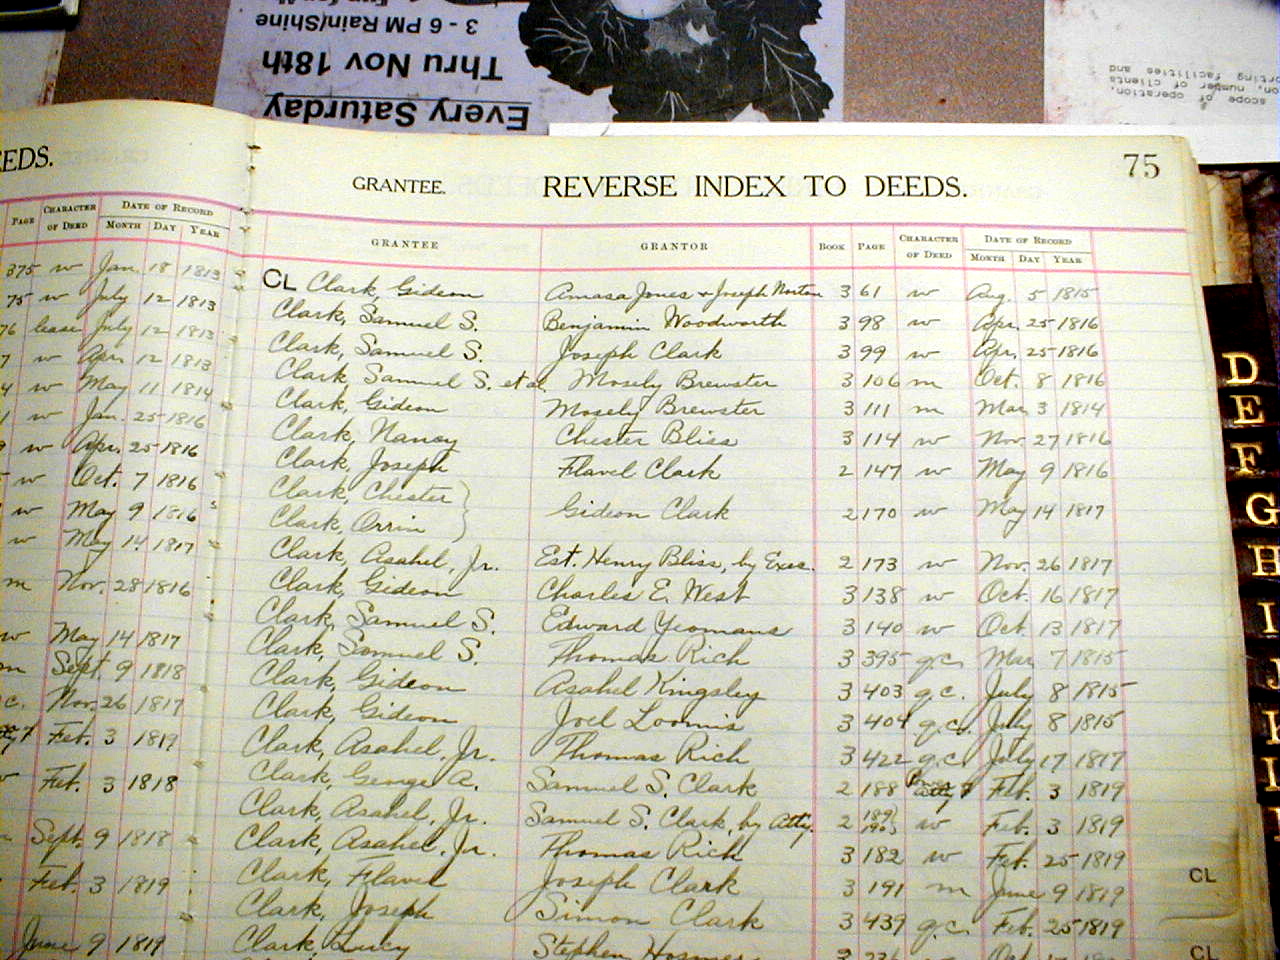 3 - 6 PM Rain/Shine
Thru Nov 18th
Every Saturday
scope of operation,
on, number of clients
orting facilities and
EEDS.
PAGE CHARACTER OF DEED DATE OF RECORD MONTH DAY YEAR
375 w Jan. 18 1813
75 w July 12 1813
76 lease July 12 1813
7 w Apr. 12 1813
4 w May 11 1814
1 w Jan. 25 1816
w Apr. 25 1816
w Oct. 7 1816
w May 9 1816
w May 14 1817
m Nov. 28 1816
w May 14 1817
m Sept. 9 1818
c. Nov. 26 1817
Feb. 3 1819
Feb. 3 1818
Sept. 9 1818
Feb. 3 1819
June 9 1819
75
GRANTEE. REVERSE INDEX TO DEEDS.
GRANTEE GRANTOR BOOK PAGE CHARACTER OF DEED DATE OF RECORD MONTH DAY YEAR
CL Clark, Gideon Amasa Jones & Joseph Norton 3 61 w Aug. 5 1815
Clark, Samuel S. Benjamin Woodworth 3 98 w Apr. 25 1816
Clark, Samuel S. Joseph Clark 3 99 w Apr. 25 1816
Clark, Samuel S. et al. Mosely Brewster 3 106 m Oct. 8 1816
Clark, Gideon Mosely Brewster 3 111 m Mar. 3 1814
Clark, Nancy Chester Bliss 3 114 w Nov. 27 1816
Clark, Joseph Flavel Clark 2 147 w May 9 1816
Clark, Chester
Clark, Orrin Gideon Clark 2 170 w May 14 1817
Clark, Asahel, Jr. Est. Henry Bliss, by Exes. 2 173 w Nov. 26 1817
Clark, Gideon Charles E. West 3 138 w Oct. 16 1817
Clark, Samuel S. Edward Yeomans 3 140 w Oct. 13 1817
Clark, Samuel S. Thomas Rich 3 395 q.c. Mar. 7 1815
Clark, Gideon Asahel Kingsley 3 403 q.c. July 8 1815
Clark, Gideon Joel Loomis 3 404 q.c. July 8 1815
Clark, Asahel, Jr. Thomas Rich 3 422 q.c. July 17 1817
Clark, George A. Samuel S. Clark 2 188 Feb. 3 1819
Clark, Asahel, Jr. Samuel S. Clark, by Atty. 2 189 190 w Feb. 3 1819
Clark, Asahel, Jr. Thomas Rich 3 182 w Feb. 25 1819
Clark, Flavel Joseph Clark 3 191 m June 9 1819
Clark, Joseph Simon Clark 3 439 q.c. Feb. 25 1819
Clark, Lucy Stephen Hosmer
CL
CL
D
E
F
G
H
I
J